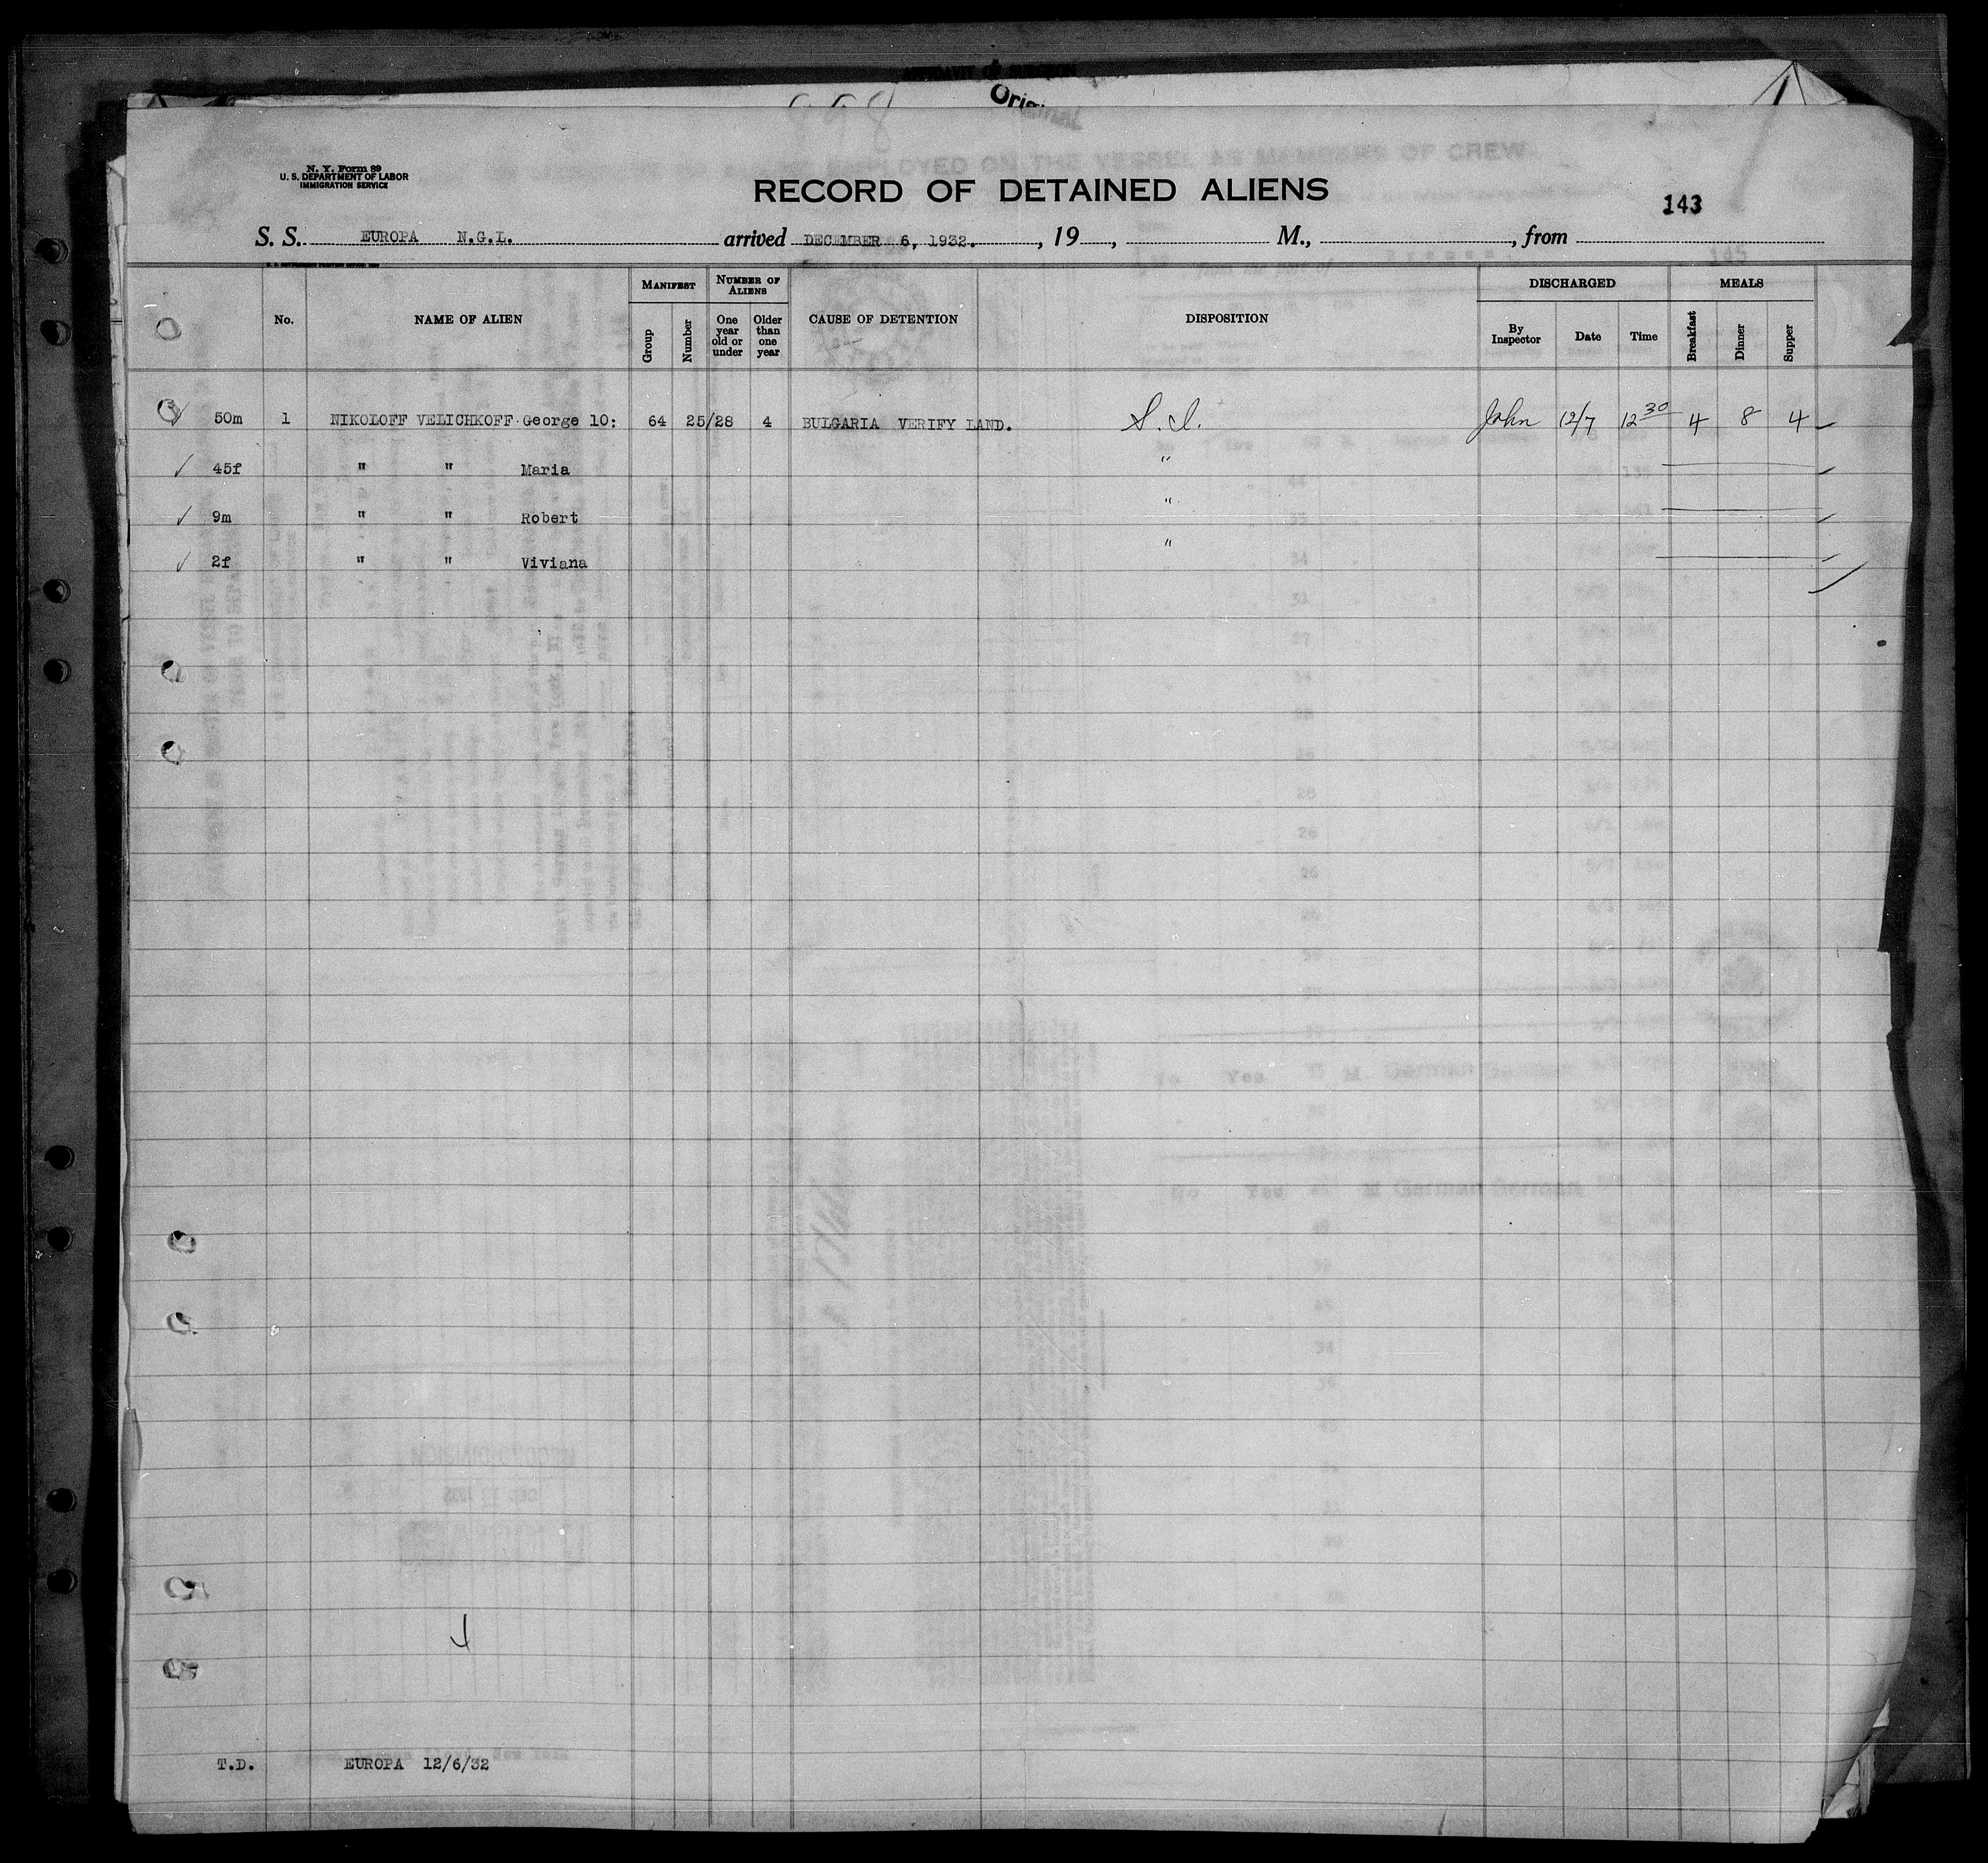 Original
N. Y. Form 89
U. S. DEPARTMENT OF LABOR
IMMIGRATION SERVICE
RECORD OF DETAINED ALIENS
143
S. S. EUROPA N.G.L. arrived DECEMBER 6, 1932. , 19 , M., , from
No. NAME OF ALIEN MANIFEST Group Number NUMBER OF ALIENS One year old or under Older than one year CAUSE OF DETENTION DISPOSITION DISCHARGED By Inspector Date Time MEALS Breakfast Dinner Supper
50m 1 NIKOLOFF VELICHKOFF George 10: 64 25/28 4 BULGARIA VERIFY LAND. S. I. John 12/7 12 30 4 8 4
45f " " Maria "
9m " " Robert "
2f " " Viviana "
T.D. EUROPA 12/6/32